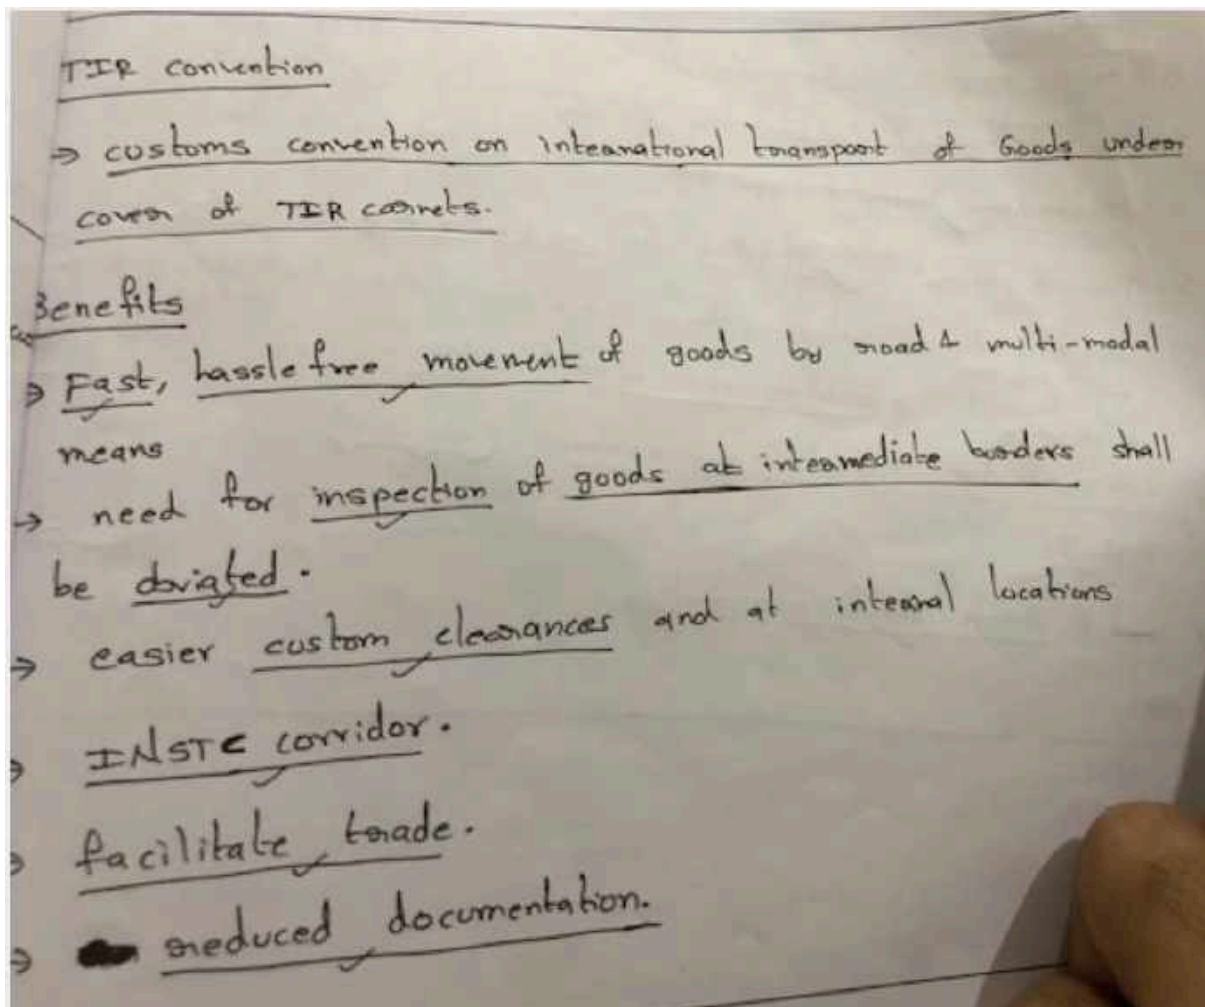 TIR convention
→ customs convention on international transport of Goods under
cover of TIR carnets.
Benefits
→ Fast, hassle free movement of goods by road & multi-modal
means
→ need for inspection of goods at intermediate borders shall
be doviated.
→ easier custom clearances and at internal locations
→ INSTC corridor.
→ facilitate trade.
→ reduced documentation.